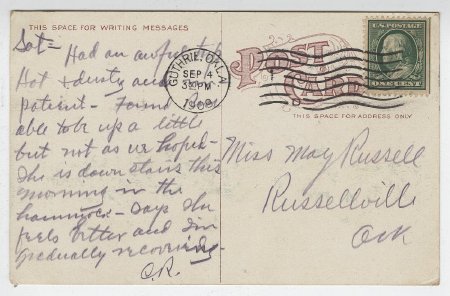 THIS SPACE FOR WRITING MESSAGES
Sat = Had an awful trip
Hot & dusty and
patient - Found
able to be up a little
but not as we hoped -
She is down stairs this
morning in the
hammock - Says she
feels better and I'm
gradually recovering -
C.R.
GUTHRIE, OKLA.
SEP 4
3 PM
1909
POST CARD
U.S. POSTAGE
ONE CENT
THIS SPACE FOR ADDRESS ONLY
Miss May Russell
Russellville
Ark